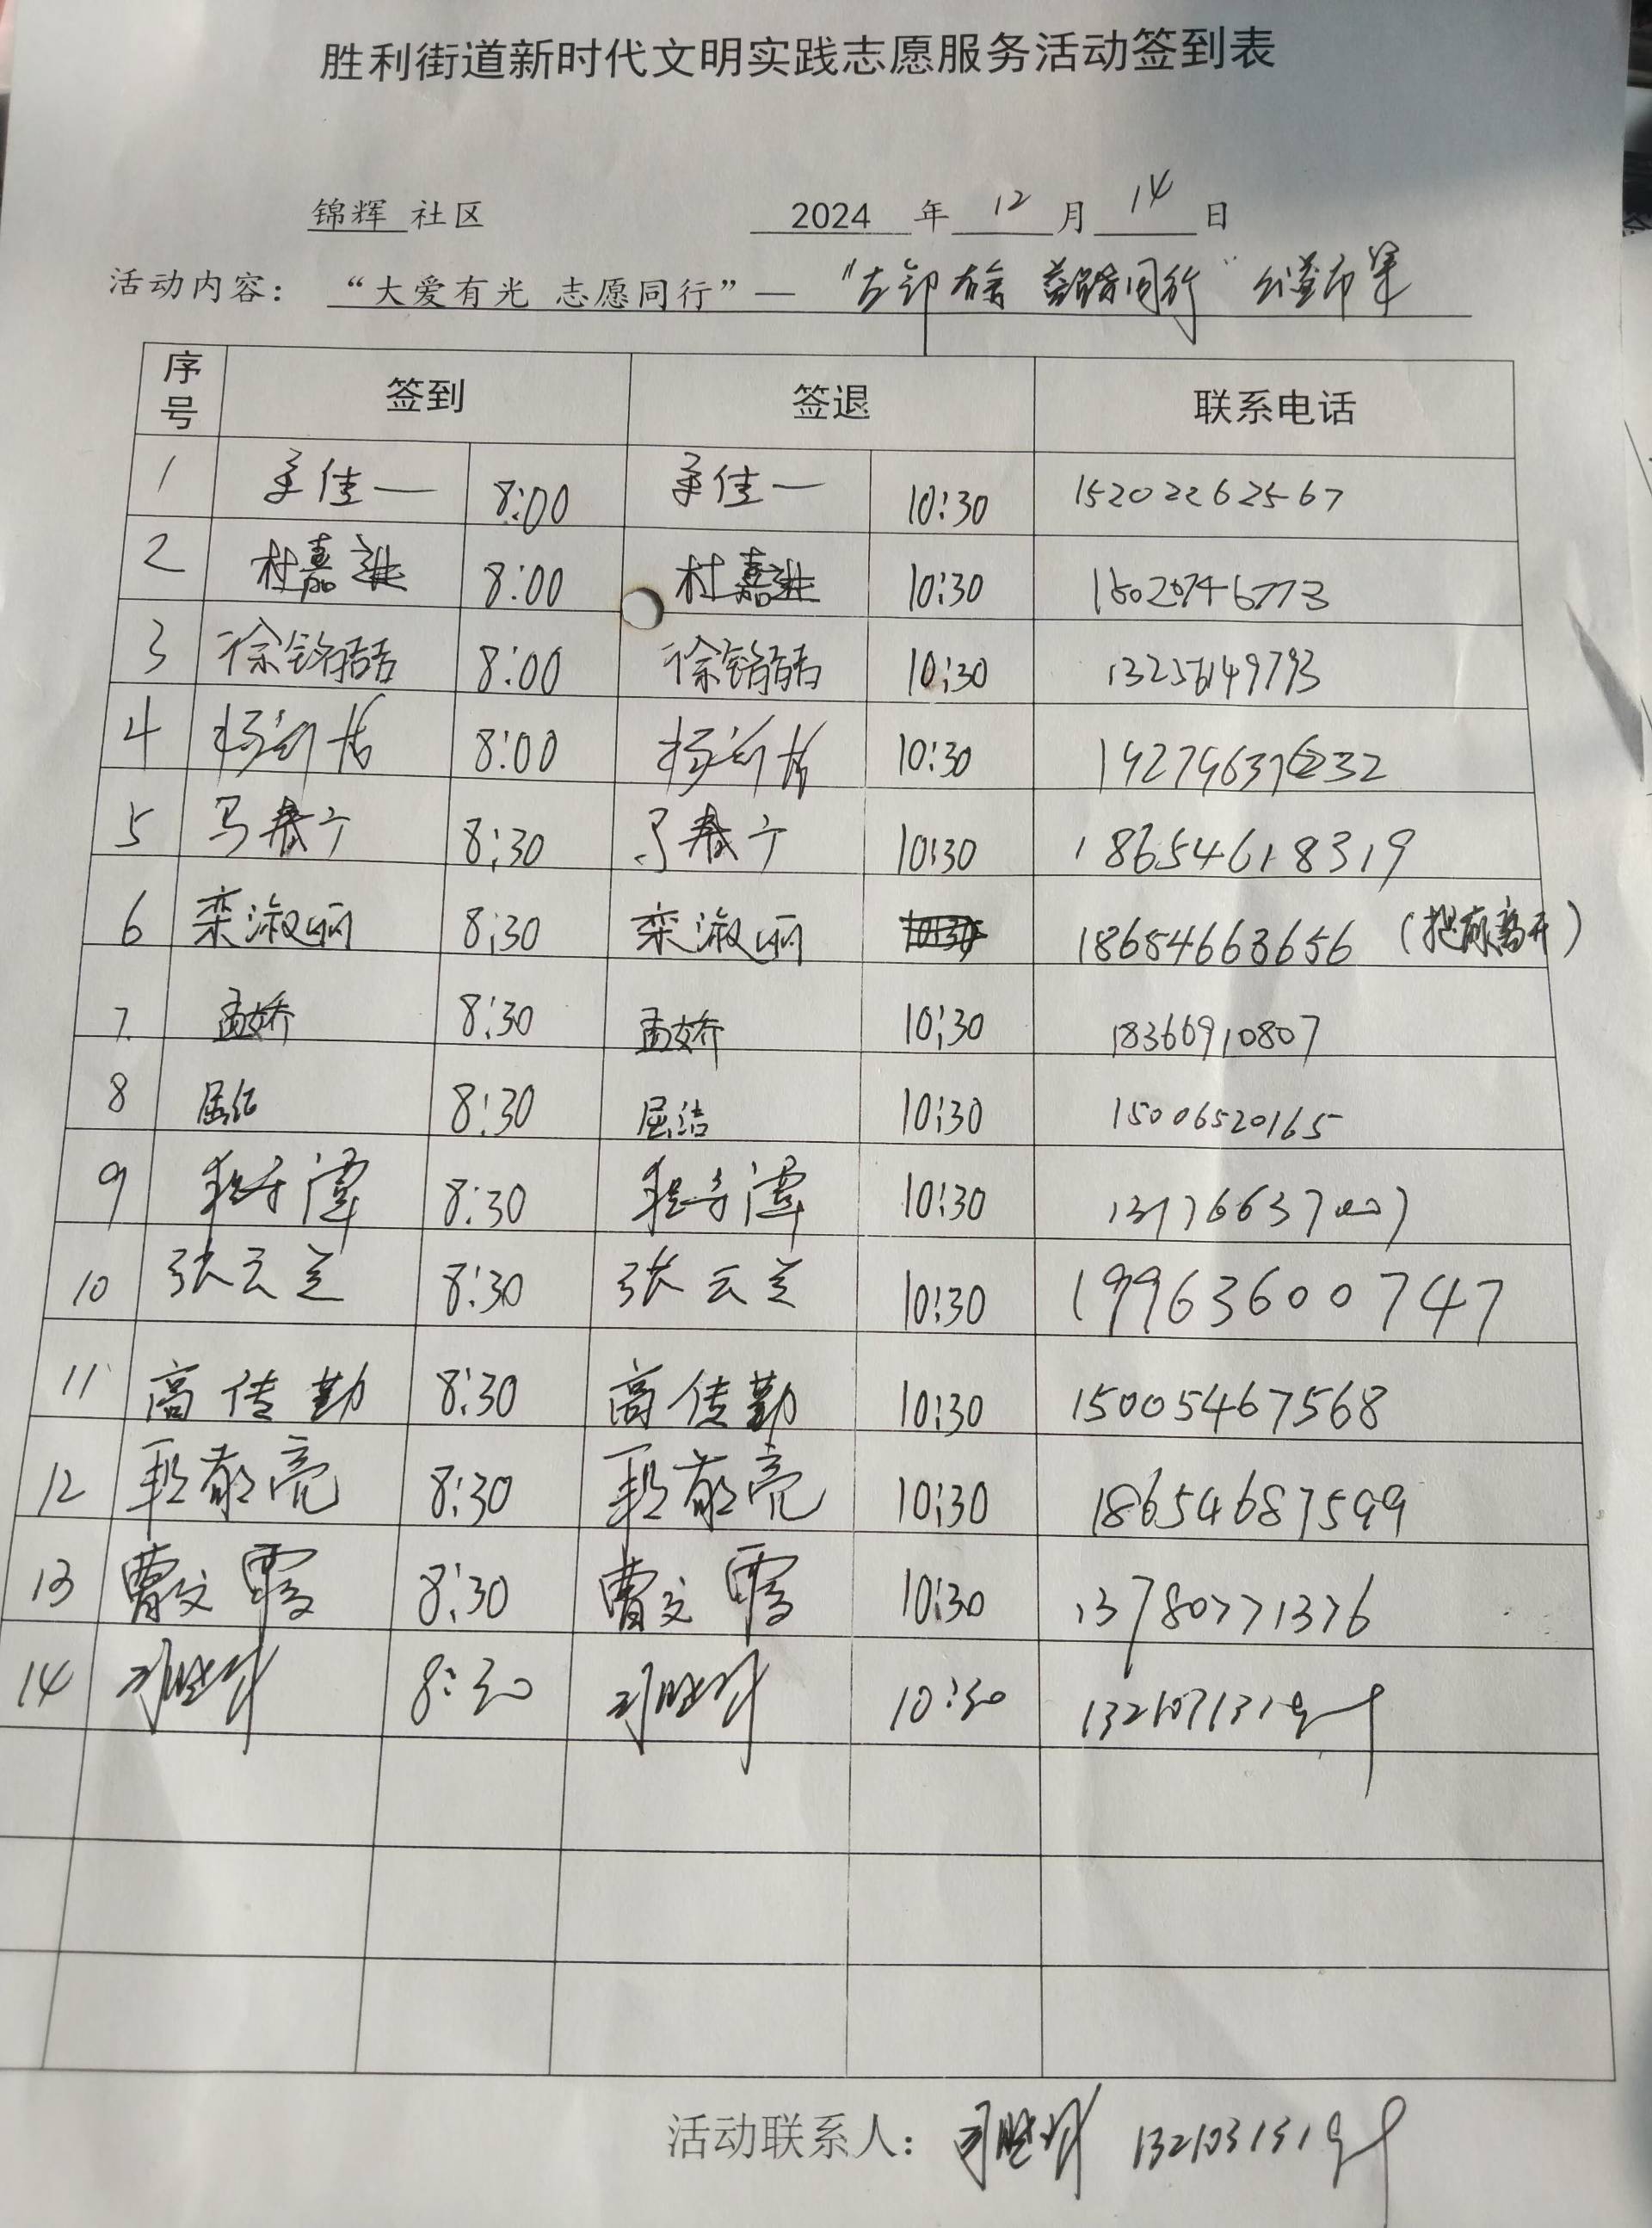 胜利街道新时代文明实践志愿服务活动签到表
锦辉 社区 2024 年 12 月 14 日
活动内容： “大爱有光 志愿同行”— “ 同行” 市集
序号 签到 签退 联系电话
1 佳一 8:00 佳一 10:30 15202262567
2 杜嘉进 8:00 杜嘉进 10:30
3 徐铭 8:00 徐铭 10:30
4 杨 8:00 杨 10:30
5 马春宁 8:30 马春宁 10:30 18654618319
6 栾淑丽 8:30 栾淑丽 18654663656 （提前离开）
7 孟娇 8:30 孟娇 10:30 18366910807
8 屈洁 8:30 屈洁 10:30 15006520165
9 8:30 10:30
10 张云兰 8:30 张云兰 10:30 19963600747
11 高传勤 8:30 高传勤 10:30 15005467568
12 段敬亮 8:30 段敬亮 10:30 18654687599
13 曹文霞 8:30 曹文霞 10:30 13780771376
14 8:30 10:30
活动联系人：